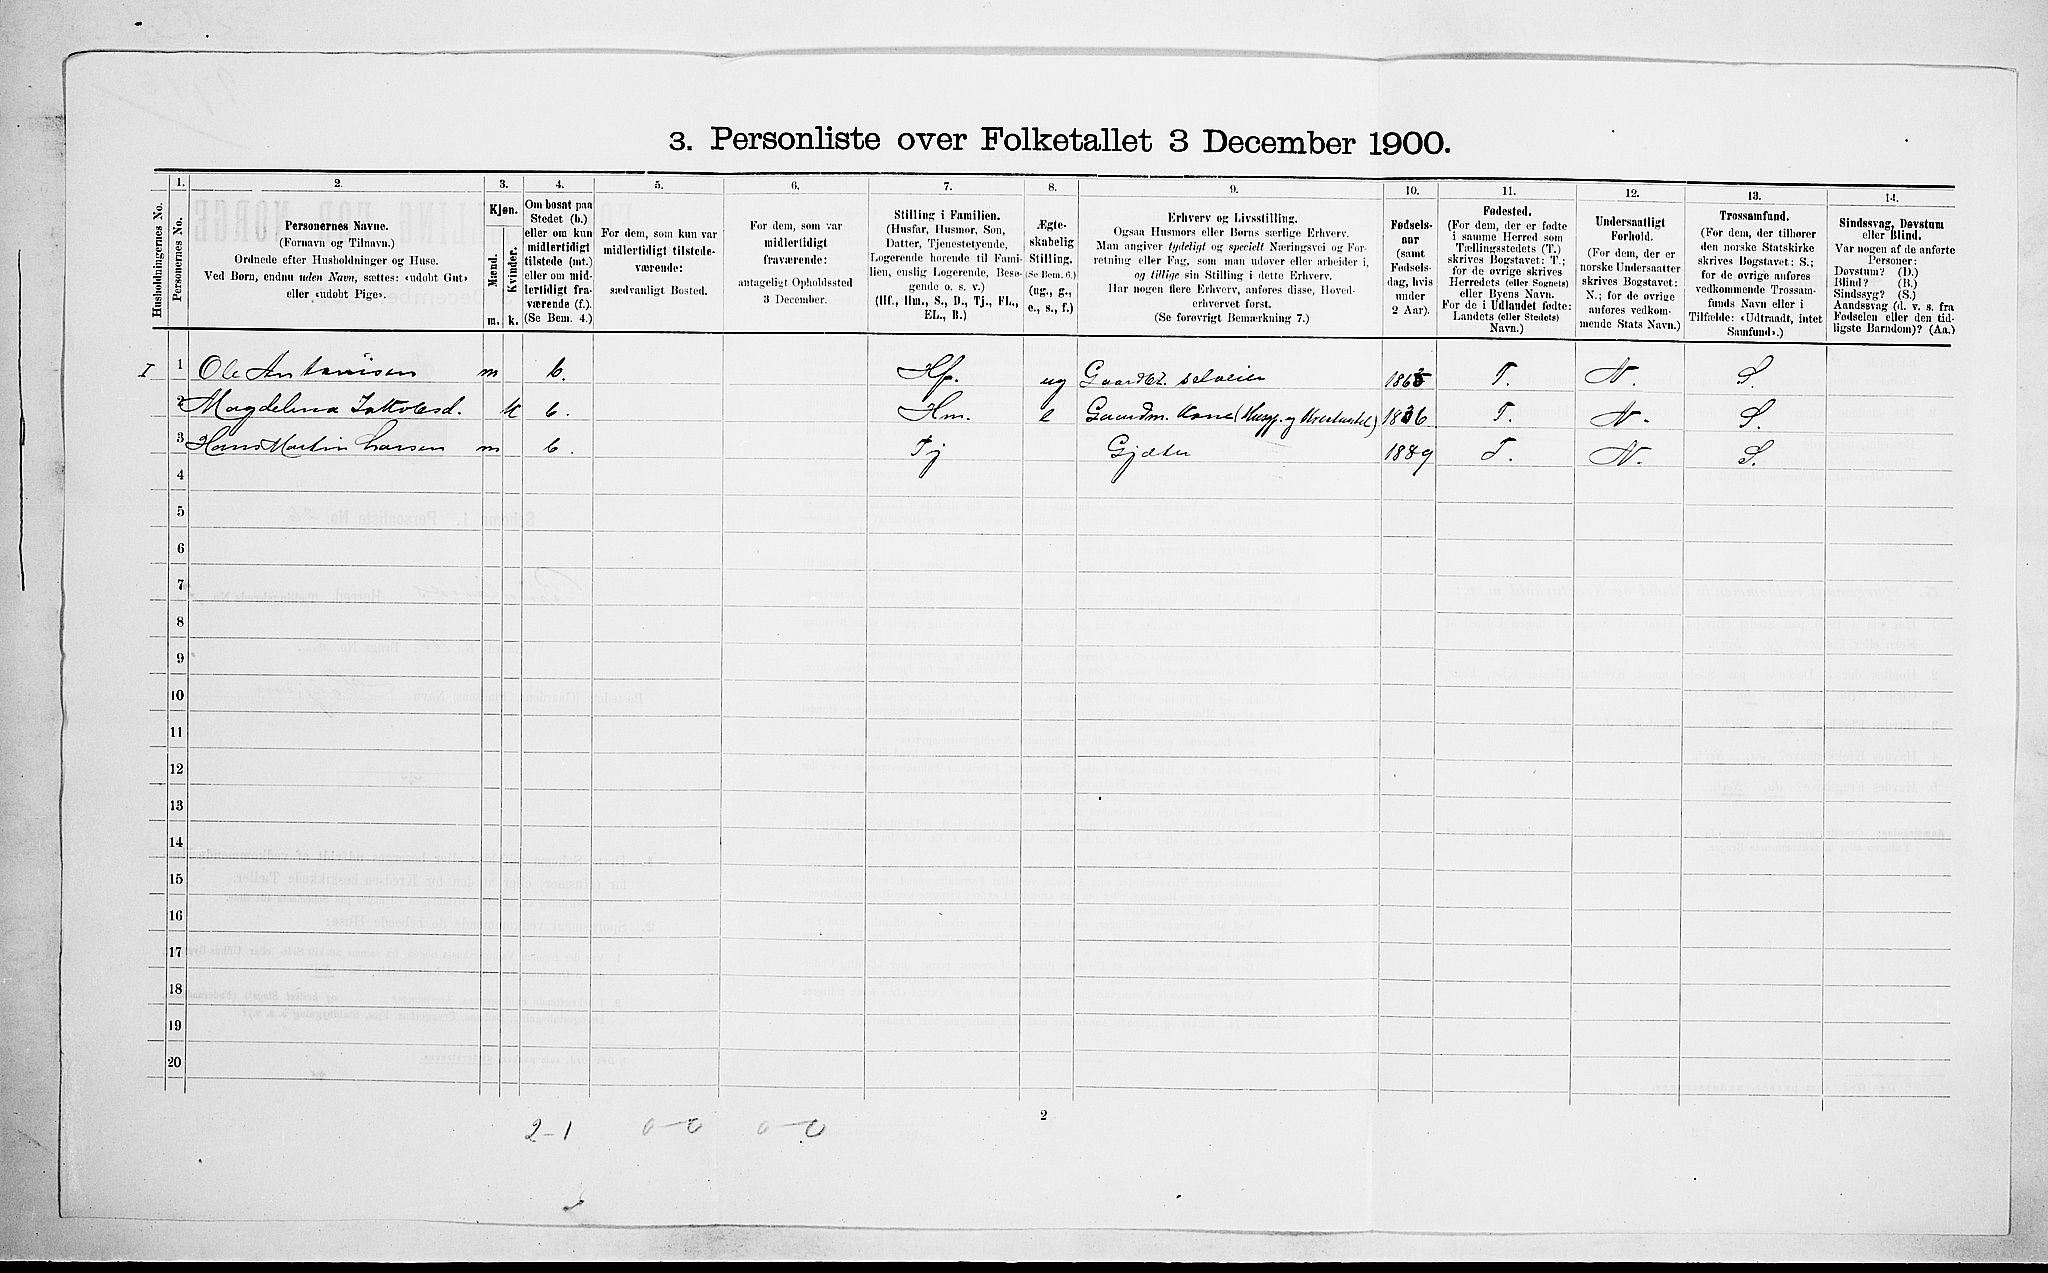 3. Personliste over Folketallet 3 December 1900.
1. 2. 3. 4. 5. 6. 7. 8. 9. 10. 11. 12. 13. 14.
Husholdningernes No.
Personernes No.
Personernes Navne.
(Fornavn og Tilnavn.)
Ordnede efter Husholdninger og Huse.
Ved Børn, endnu uden Navn, sættes: «udøbt Gut»
eller «udøbt Pige».
Kjøn.
Mænd.
Kvinder.
m. k.
Om bosat paa
Stedet (b.)
eller om kun
midlertidigt
tilstede (mt.)
eller om mid-
lertidigt fra-
værende (f.).
(Se Bem. 4.)
For dem, som kun var
midlertidigt tilstede-
værende:
sædvanligt Bosted.
For dem, som var
midlertidigt
fraværende:
antageligt Opholdssted
3 December.
Stilling i Familien.
(Husfar, Husmor, Søn,
Datter, Tjenestetyende,
Logerende hørende til Fami-
lien, enslig Logerende, Besø-
gende o. s. v.)
(Hf., Hm., S., D., Tj., FL.,
EL., B.)
Ægte-
skabelig
Stilling.
(Se Bem. 6.)
(ug., g.,
e., s., f.)
Erhverv og Livsstilling.
Ogsaa Husmors eller Børns særlige Erhverv.
Man angiver tydeligt og specielt Næringsvei og For-
retning eller Fag, som man udover eller arbeider i,
og tillige sin Stilling i dette Erhverv.
Har nogen flere Erhverv, anføres disse, Hoved-
erhvervet først.
(Se forøvrigt Bemærkning 7.)
Fødsels-
aar
(samt
Fødsels-
dag, hvis
under
2 Aar).
Fødested.
(For dem, der er fødte
i samme Herred som
Tællingsstedets (T.)
skrives Bogstavet: T.;
for de øvrige skrives
Herredets (eller Sognets)
eller Byens Navn.
For de i Udlandet fødte:
Landets (eller Stedets)
Navn.)
Undersaatligt
Forhold.
(For dem, der er
norske Undersaatter
skrives Bogstavet:
N.; for de øvrige
anføres vedkom-
mende Stats Navn.)
Trossamfund.
(For dem, der tilhører
den norske Statskirke
skrives Bogstavet: S.;
for de øvrige anføres
vedkommende Trossam-
funds Navn eller i
Tilfælde: «Udtraadt, intet
Samfund».)
Sindssvag, Døvstum
eller Blind.
Var nogen af de anførte
Personer:
Døvstum? (D.)
Blind? (B.)
Sindssyg? (S.)
Aandssvag (d. v. s. fra
Fødselen eller den tid-
ligste Barndom)? (Aa.)
I 1 Ole Antonisen m b. Hf. ug Gaardbr. selveier 1865 T. N. S.
2 Magdelina Jakobsd. k b. Hm. e Gaardm. Kone (Husg. og Kreaturstel) 1836 T. N. S.
3 Hans Martin Larsen m b. Tj Gjæter 1889 T. N. S.
4
5
6
7
8
9
10
11
12
13
14
15
16
17
18
19
20
2
2-1 0-0 0-0